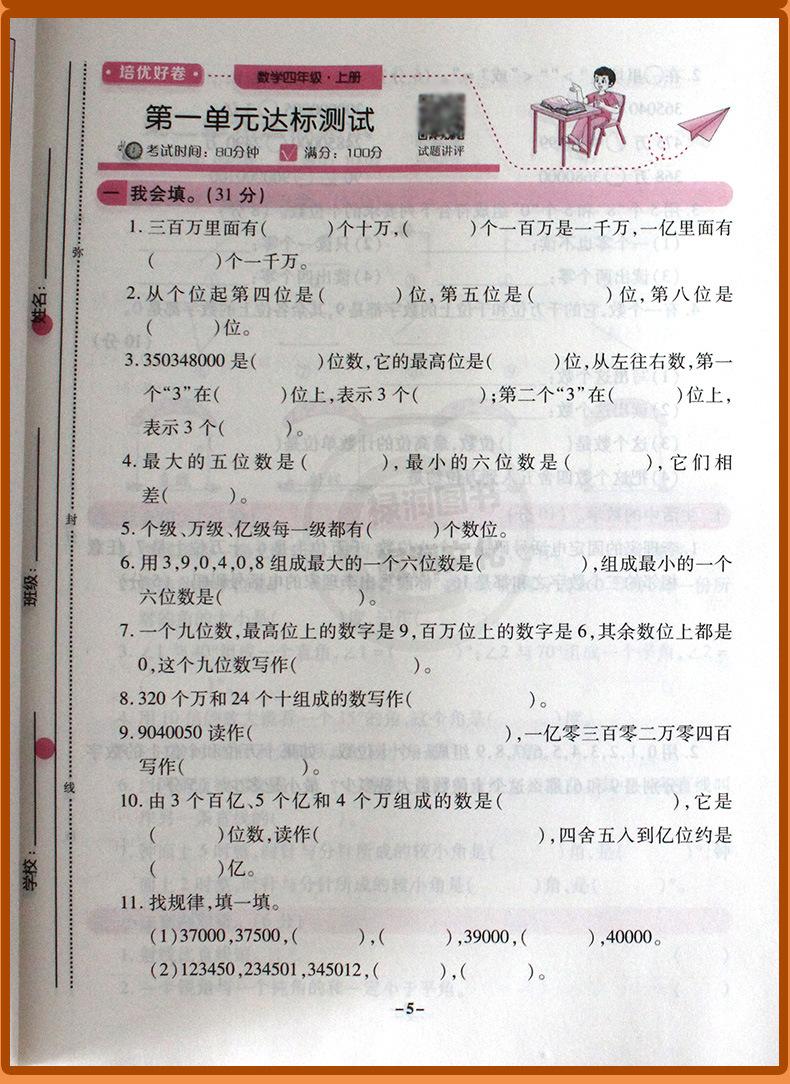 培优好卷
数学四年级·上册
第一单元达标测试
考试时间：80分钟 满分：100分
试题讲评
一 我会填。(31 分)
1. 三百万里面有( )个十万,( )个一百万是一千万,一亿里面有
( )个一千万。
2. 从个位起第四位是( )位,第五位是( )位,第八位是
( )位。
3. 350348000 是( )位数,它的最高位是( )位,从左往右数,第一
个“3”在( )位上,表示 3 个( );第二个“3”在( )位上,
表示 3 个( )。
4. 最大的五位数是( ),最小的六位数是( ),它们相
差( )。
5. 个级、万级、亿级每一级都有( )个数位。
6. 用 3,9,0,4,0,8 组成最大的一个六位数是( ),组成最小的一个
六位数是( )。
7. 一个九位数,最高位上的数字是 9,百万位上的数字是 6,其余数位上都是
0,这个九位数写作( )。
8. 320 个万和 24 个十组成的数写作( )。
9. 9040050 读作( ),一亿零三百零二万零四百
写作( )。
10. 由 3 个百亿、5 个亿和 4 个万组成的数是( ),它是
( )位数,读作( ),四舍五入到亿位约是
( )亿。
11. 找规律,填一填。
(1)37000,37500,( ),( ),39000,( ),40000。
(2)123450,234501,345012,( ),( )。
-5-
姓名：
班级：
学校：
弥
封
线
绿洲图书